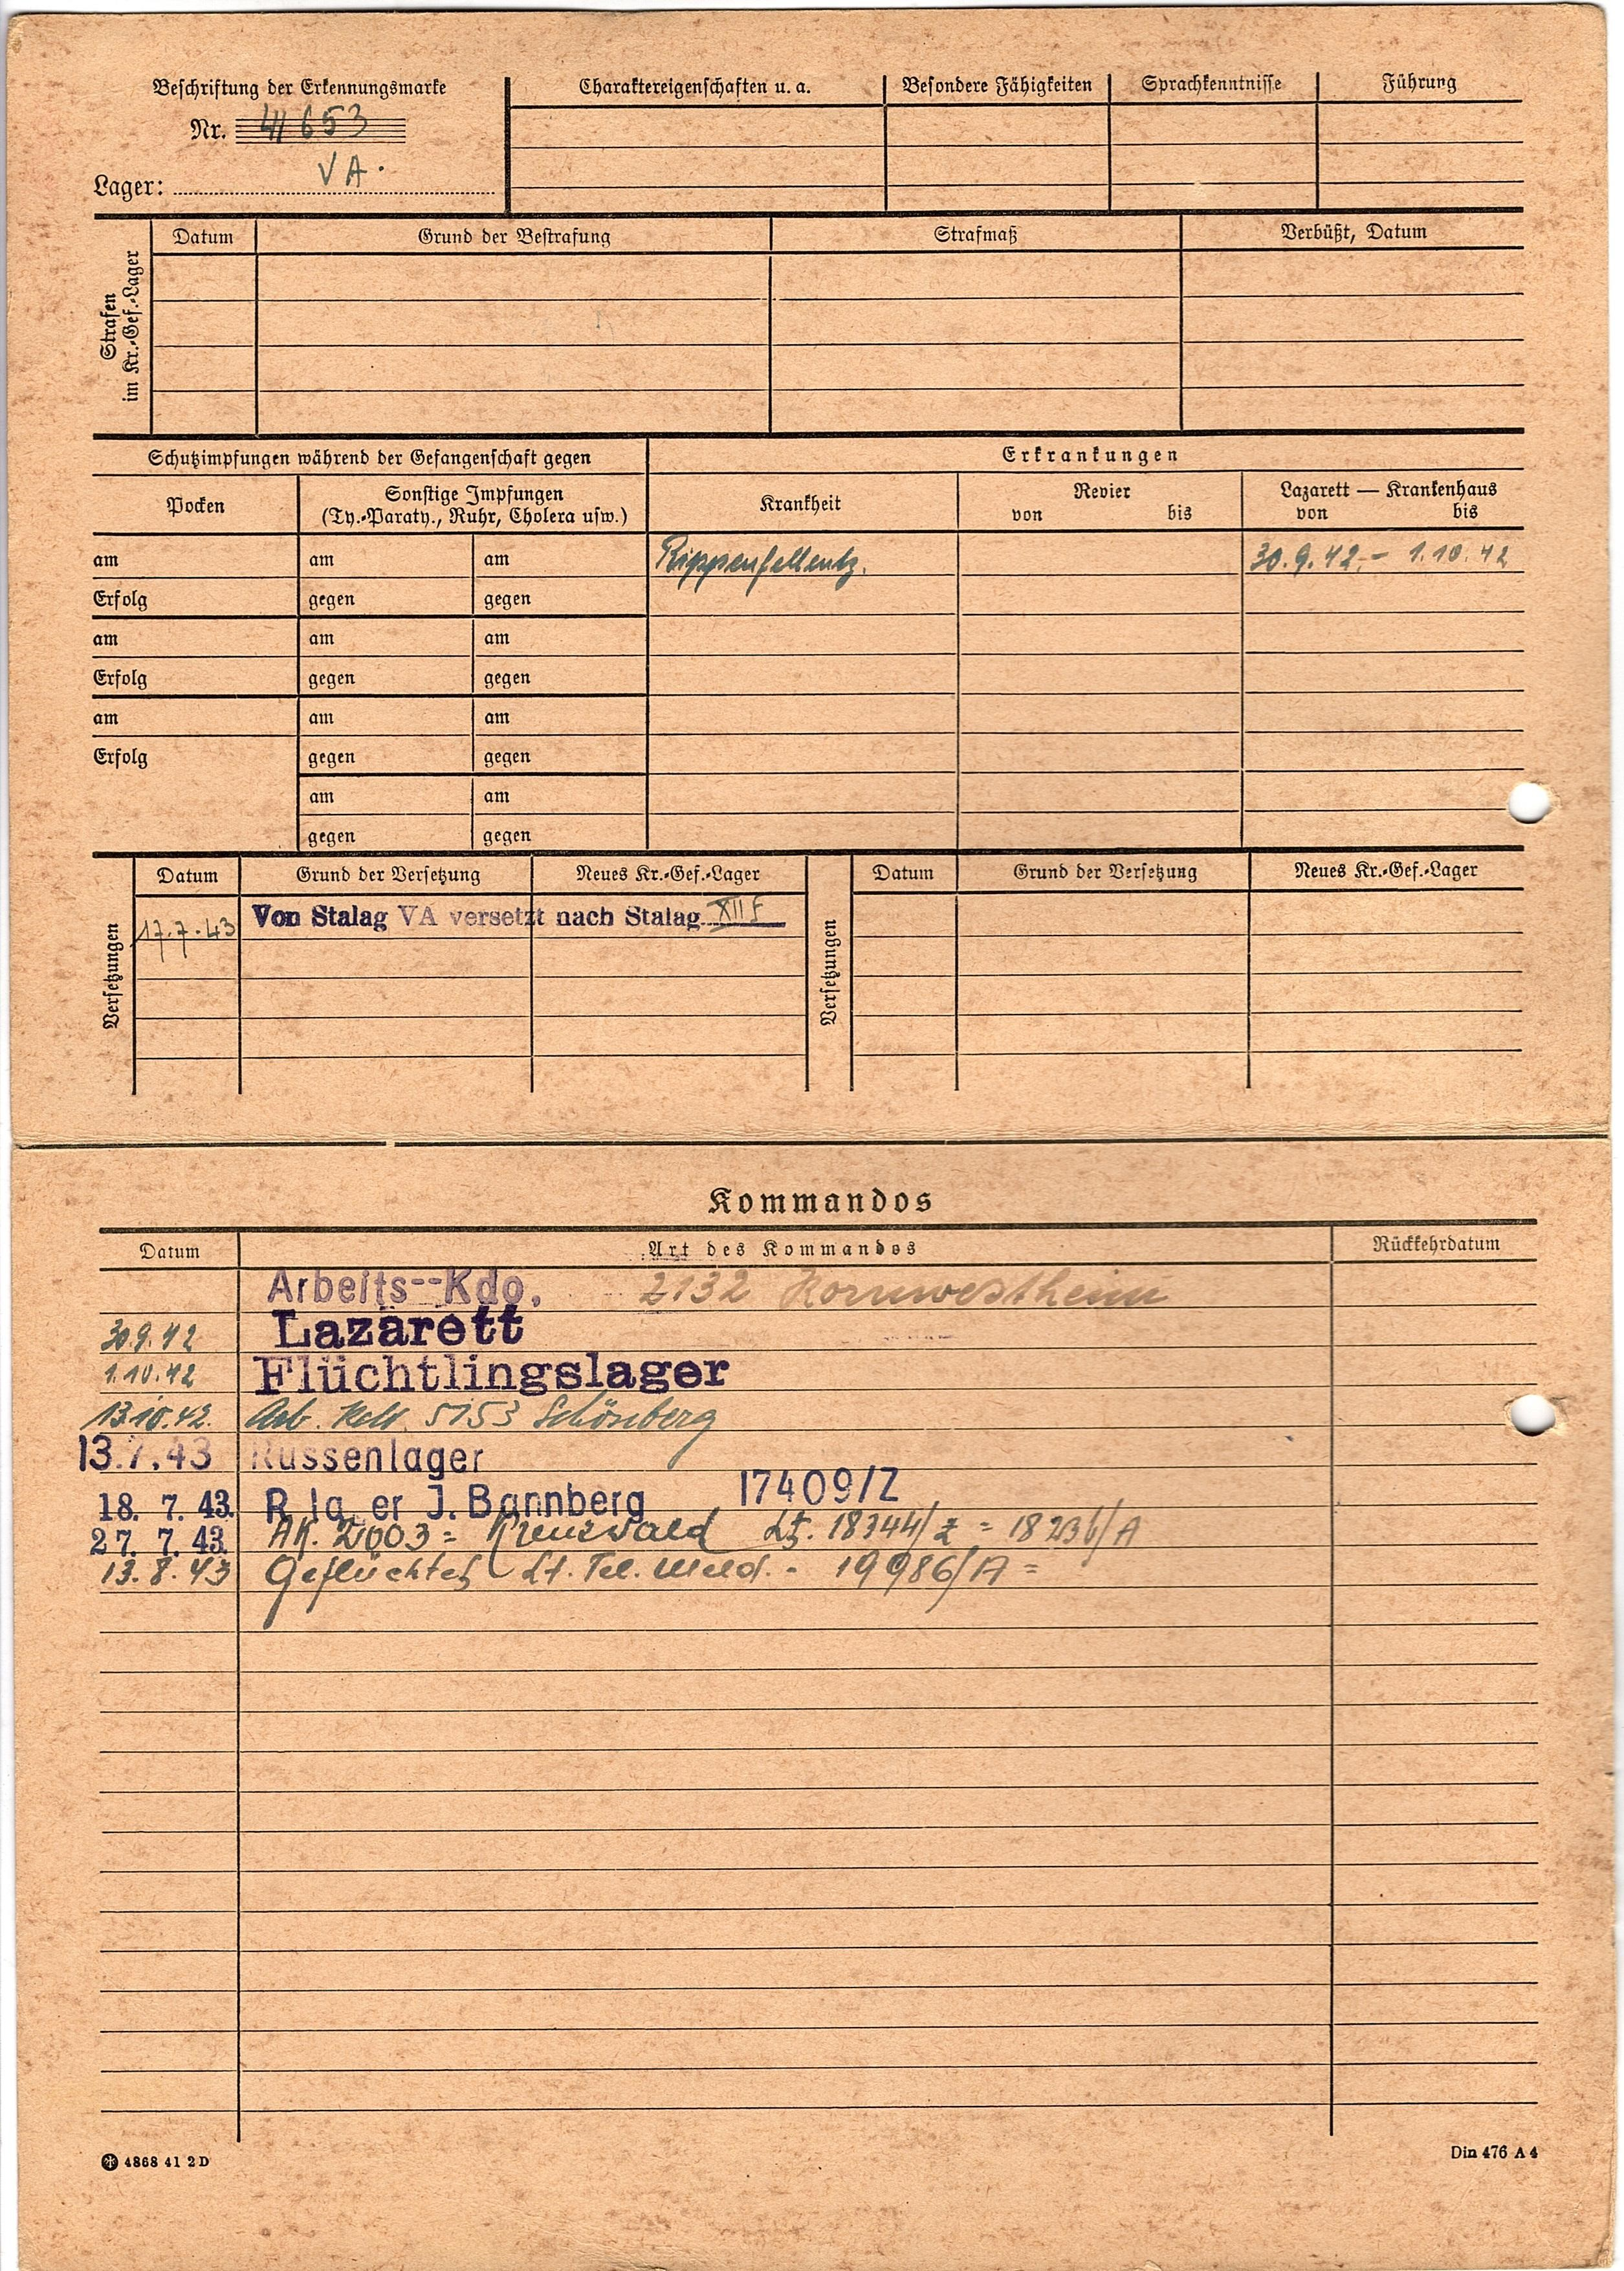 Beschriftung der Erkennungsmarke
Nr. 41653
Lager: VA.
Charaktereigenschaften u. a. Besondere Fähigkeiten Sprachkenntnisse Führung
Strafen
im Kr.-Gef.-Lager
Datum Grund der Bestrafung Strafmaß Verbüßt, Datum
Schutzimpfungen während der Gefangenschaft gegen
Erkrankungen
Pocken
Sonstige Impfungen
(Ty.-Paraty., Ruhr, Cholera usw.)
Krankheit
Revier
von bis
Lazarett — Krankenhaus
von bis
am am am Rippenfellentz. 30.9.42 - 1.10.42
Erfolg gegen gegen
am am am
Erfolg gegen gegen
am am am
Erfolg gegen gegen
am am
gegen gegen
Versetzungen
Datum Grund der Versetzung Neues Kr.-Gef.-Lager
17.7.43 Von Stalag VA versetzt nach Stalag XII F
Versetzungen
Datum Grund der Versetzung Neues Kr.-Gef.-Lager
Kommandos
Datum Art des Kommandos Rückkehrdatum
Arbeits--Kdo. 2132 Kornwestheim
30.9.42 Lazarett
1.10.42 Flüchtlingslager
13.10.42. Arb. 5153 Schönberg
13.7.43 Russenlager
18. 7. 43. R la er J. Bannberg 17409/Z
27. 7. 43. AK. 2003 = Kreuzwald Lt. 18344/Z = 18236/A
13.8.43 Geflüchtet Lt. Tel. Meld. - 19986/A =
4868 41 2 D
Din 476 A 4